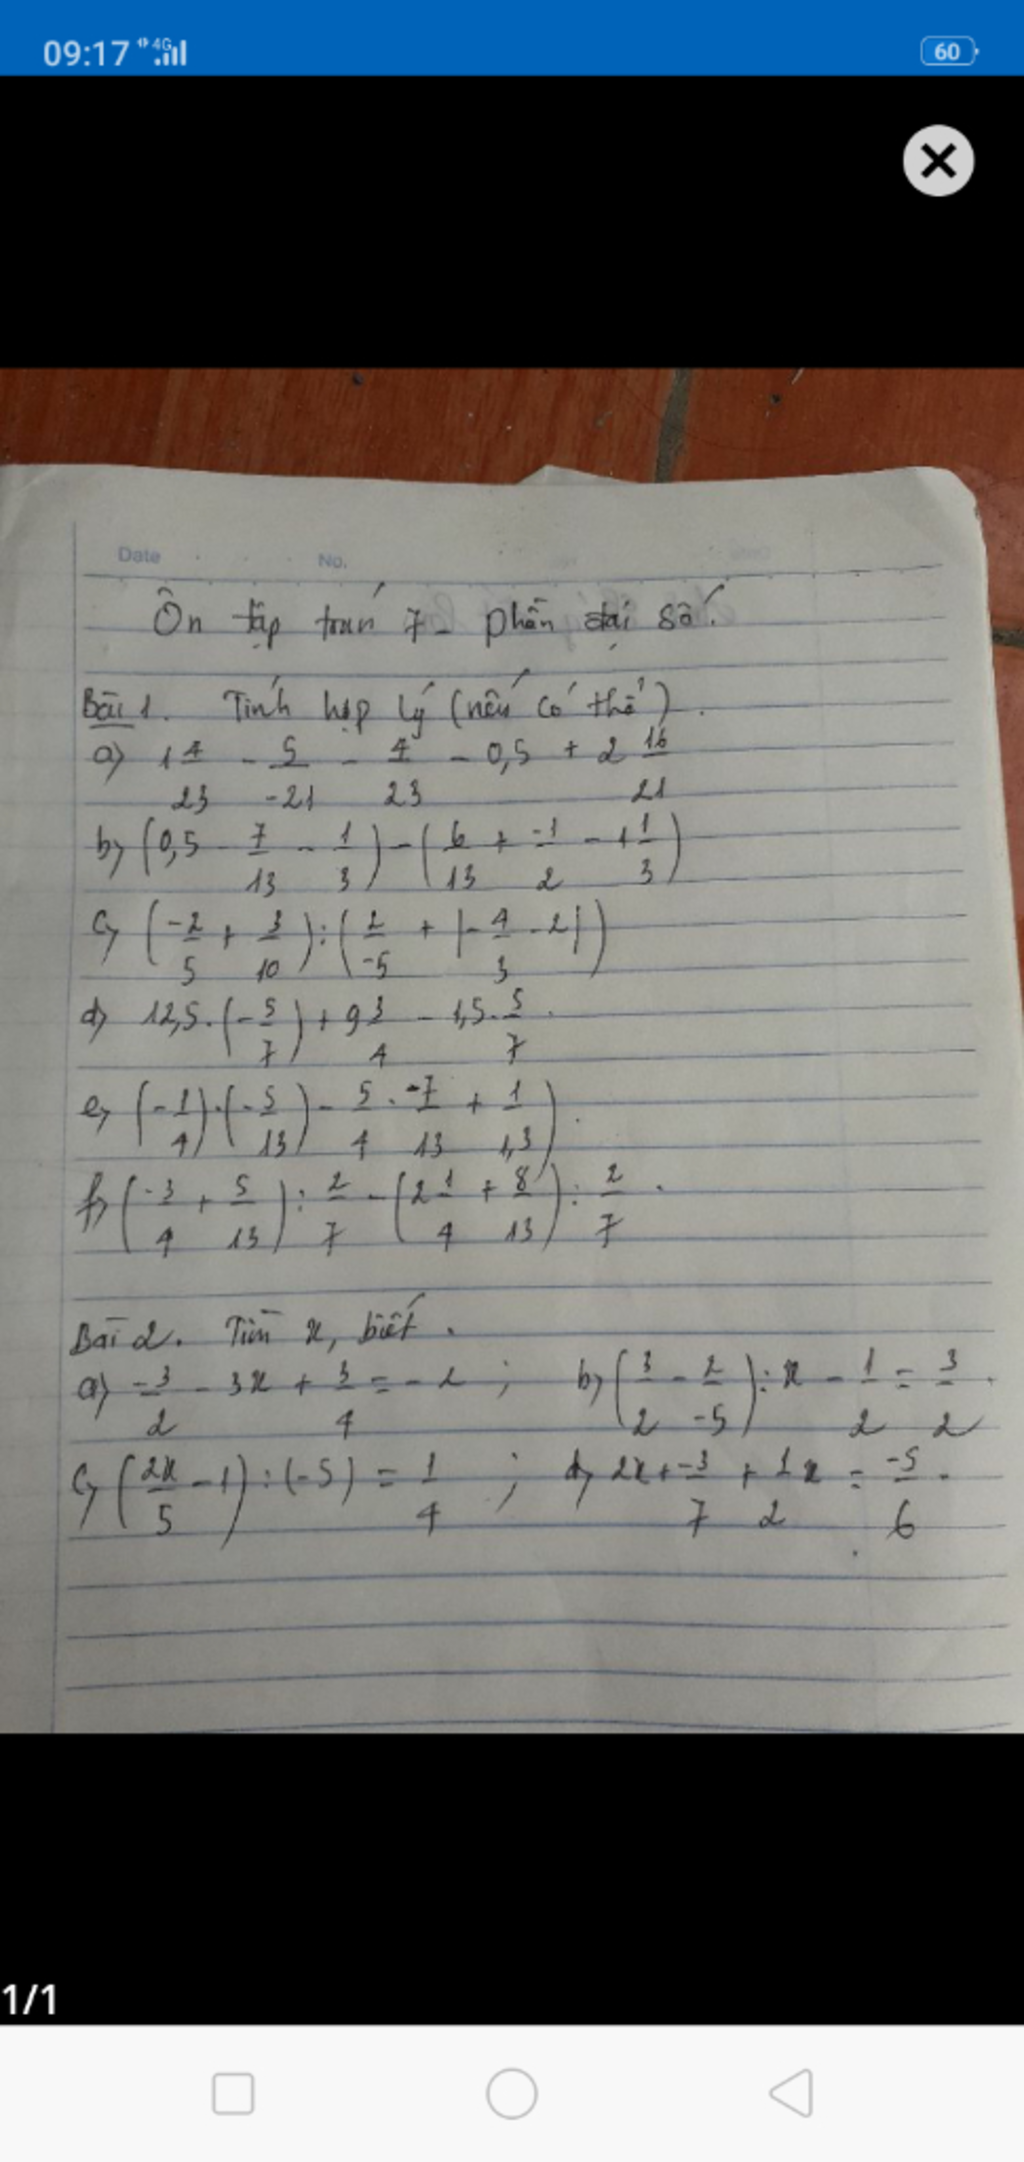 09:17 4G 60
Date No.
Ôn tập toán 7 - phần đại số.
Bài 1. Tính hợp lý (nếu có thể).
a) 1 4/23 - 5/-21 - 4/23 - 0,5 + 2 16/21
b) (0,5 - 7/13 - 1/3) - (6/13 + -1/2 - 1 1/3)
c) (-2/5 + 3/10) : (2/-5 + |-4/3 - 2|)
d) 12,5 . (-5/7) + 9 3/4 - 1,5 . 5/7.
e) (-1/4) . (-5/13) - 5/4 . -7/13 + 1/1,3).
f) (-3/4 + 5/13) : 2/7 - (2 1/4 + 8/13) : 2/7.
Bài 2. Tìm x, biết.
a) -3/2 - 3x + 3/4 = -2 ; b) (3/2 - 2/-5) : x - 1/2 = 3/2.
c) (2x/5 - 1) : (-5) = 1/4 ; d) 2x + -3/7 + 1/2 x = -5/6.
1/1